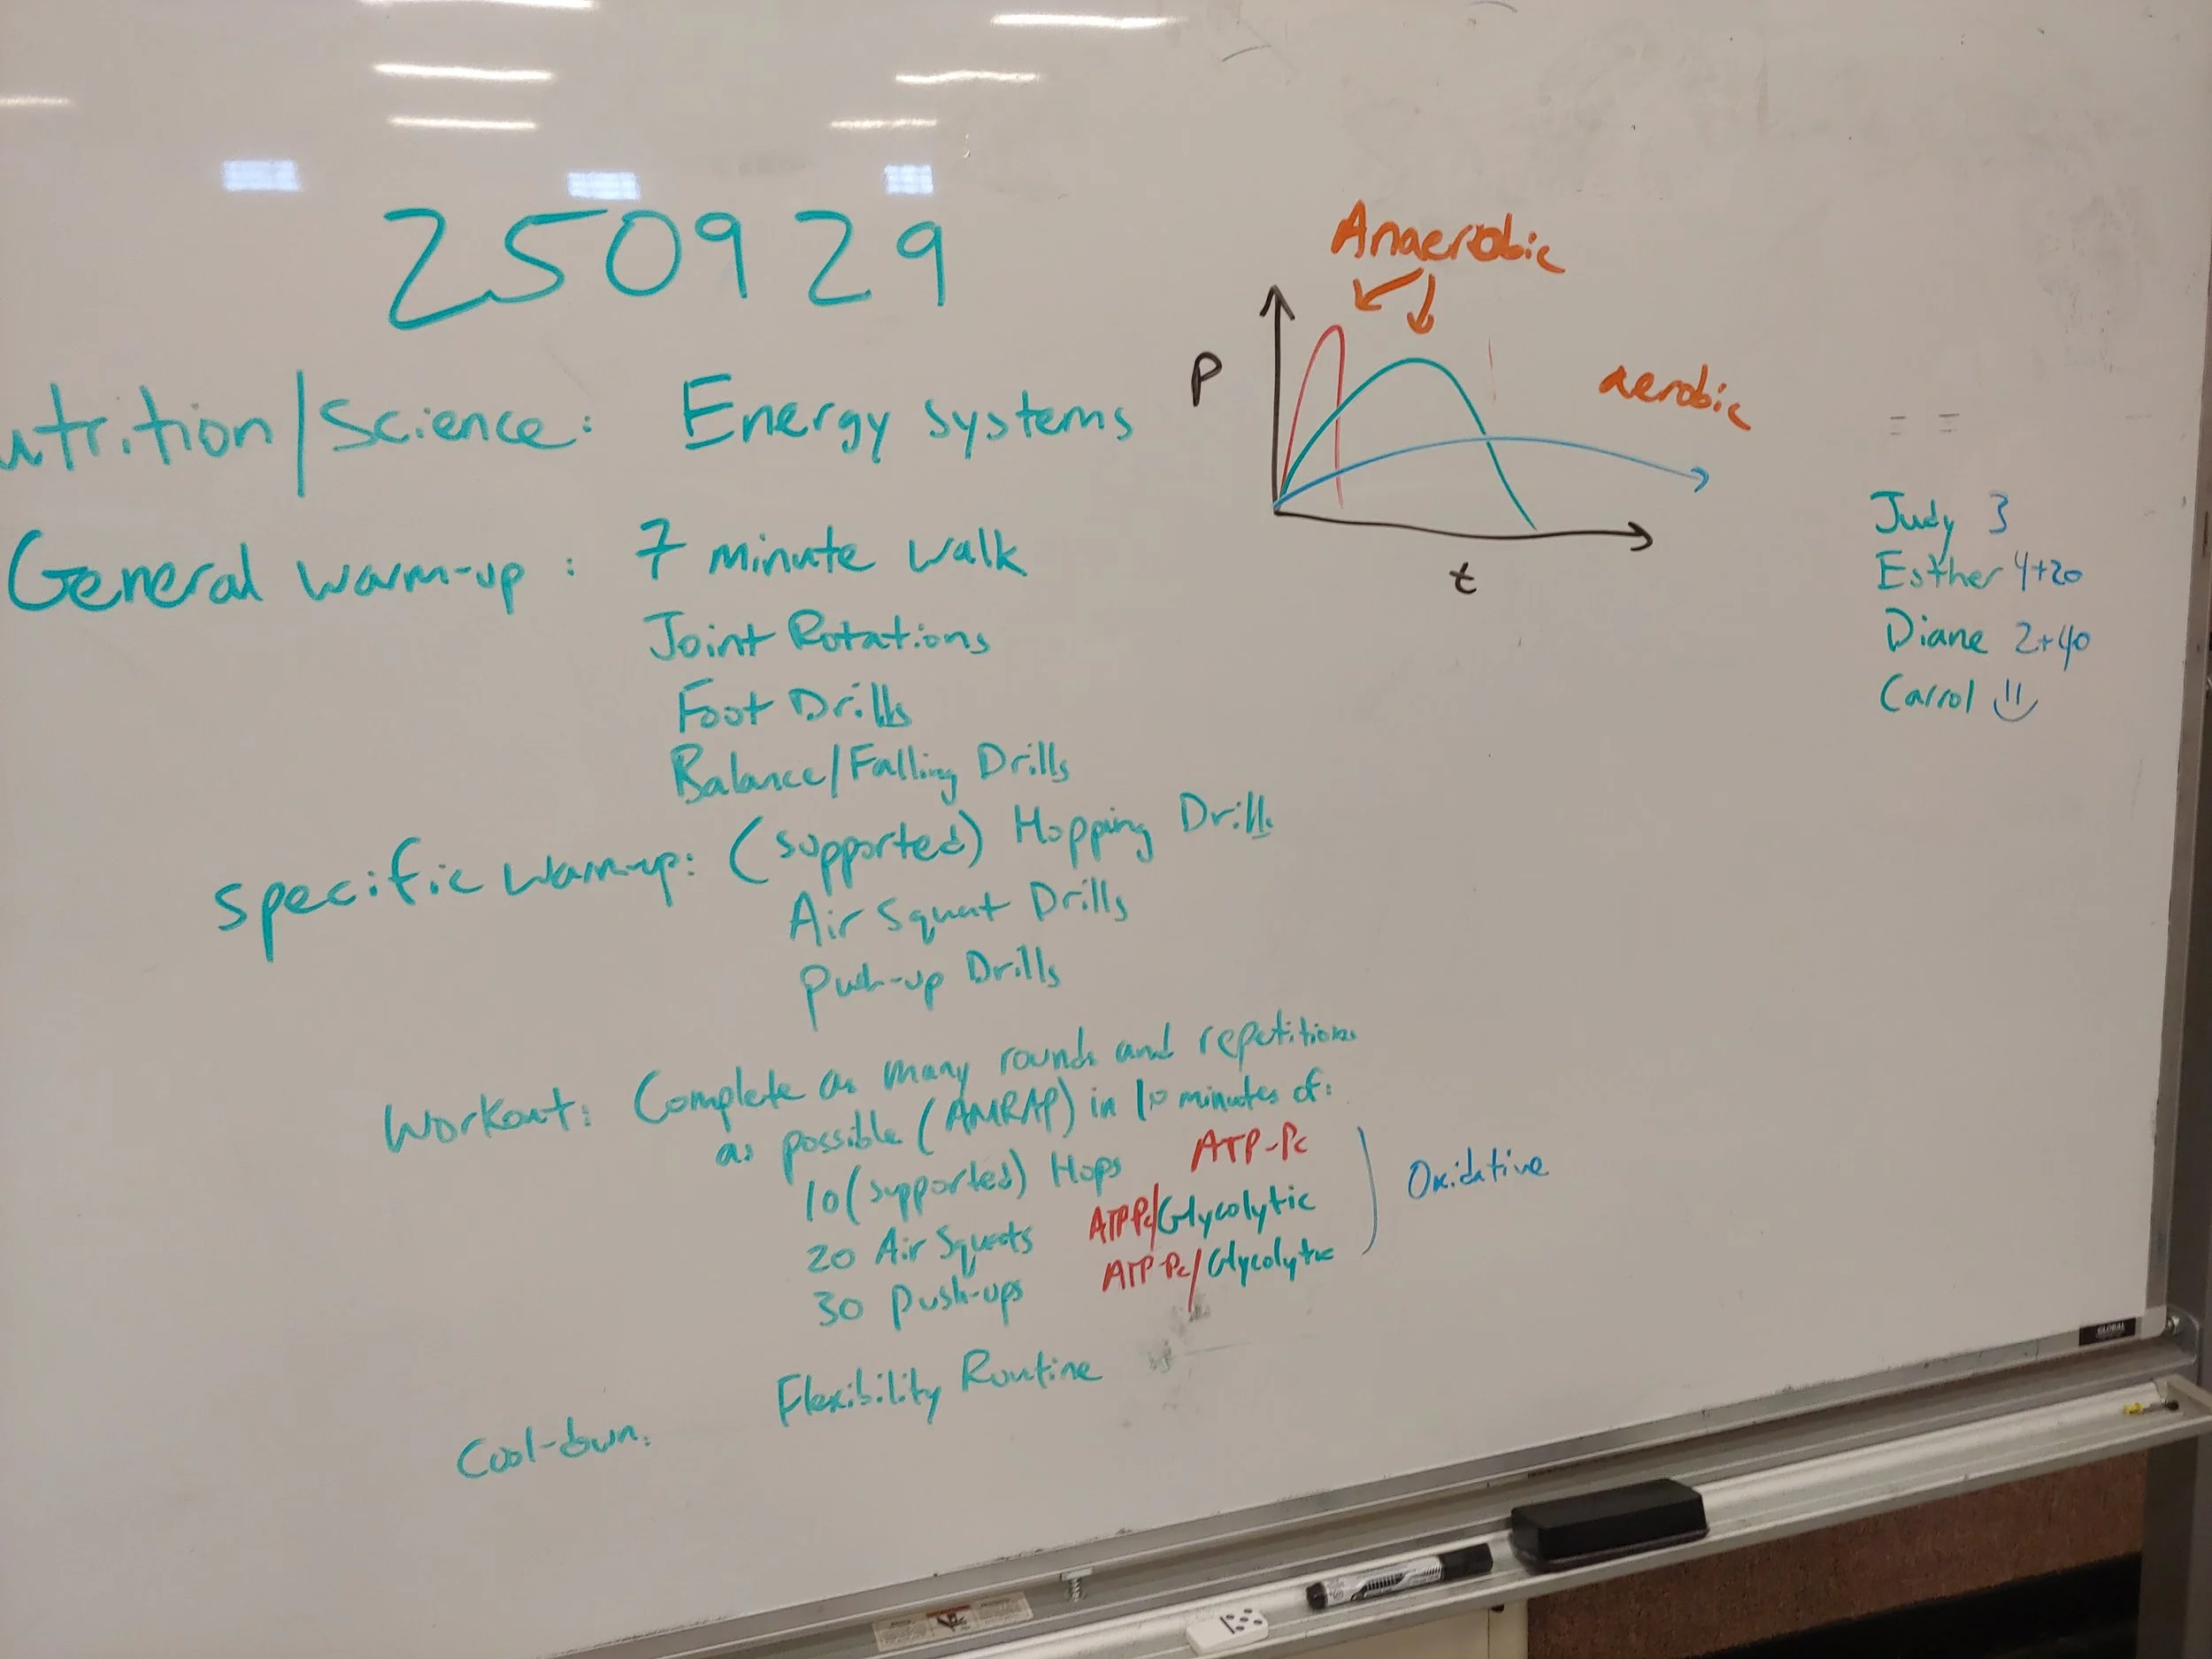 250929
utrition/Science: Energy systems
General warm-up: 7 minute walk
Joint Rotations
Foot Drills
Balance/Falling Drills
Specific warm-up: (supported) Hopping Drills
Air Squat Drills
Push-up Drills
Workout: Complete as many rounds and repetitions
as possible (AMRAP) in 10 minutes of:
10 (supported) Hops ATP-Pc
20 Air Squats ATPPc/Glycolytic
30 Push-ups ATP-Pc/Glycolytic
Oxidative
Cool-down: Flexibility Routine
Anaerobic
P
aerobic
t
Judy 3
Esther 4+20
Diane 2+40
Carrol
GLOBAL